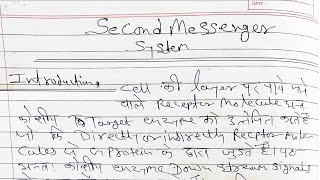 DATE:
Second Messenger
System
Introduction Cell की layer पर पाये जाने
वाले Receptor Molecule अन्त
कोशीय Target enzyme को उत्तेजित करते है
जो कि Directly or indirectly Receptor Mole
cules से G Protein के द्वारा जुड़ते हैं यह
अन्तः कोशीय enzyme Down stream signals